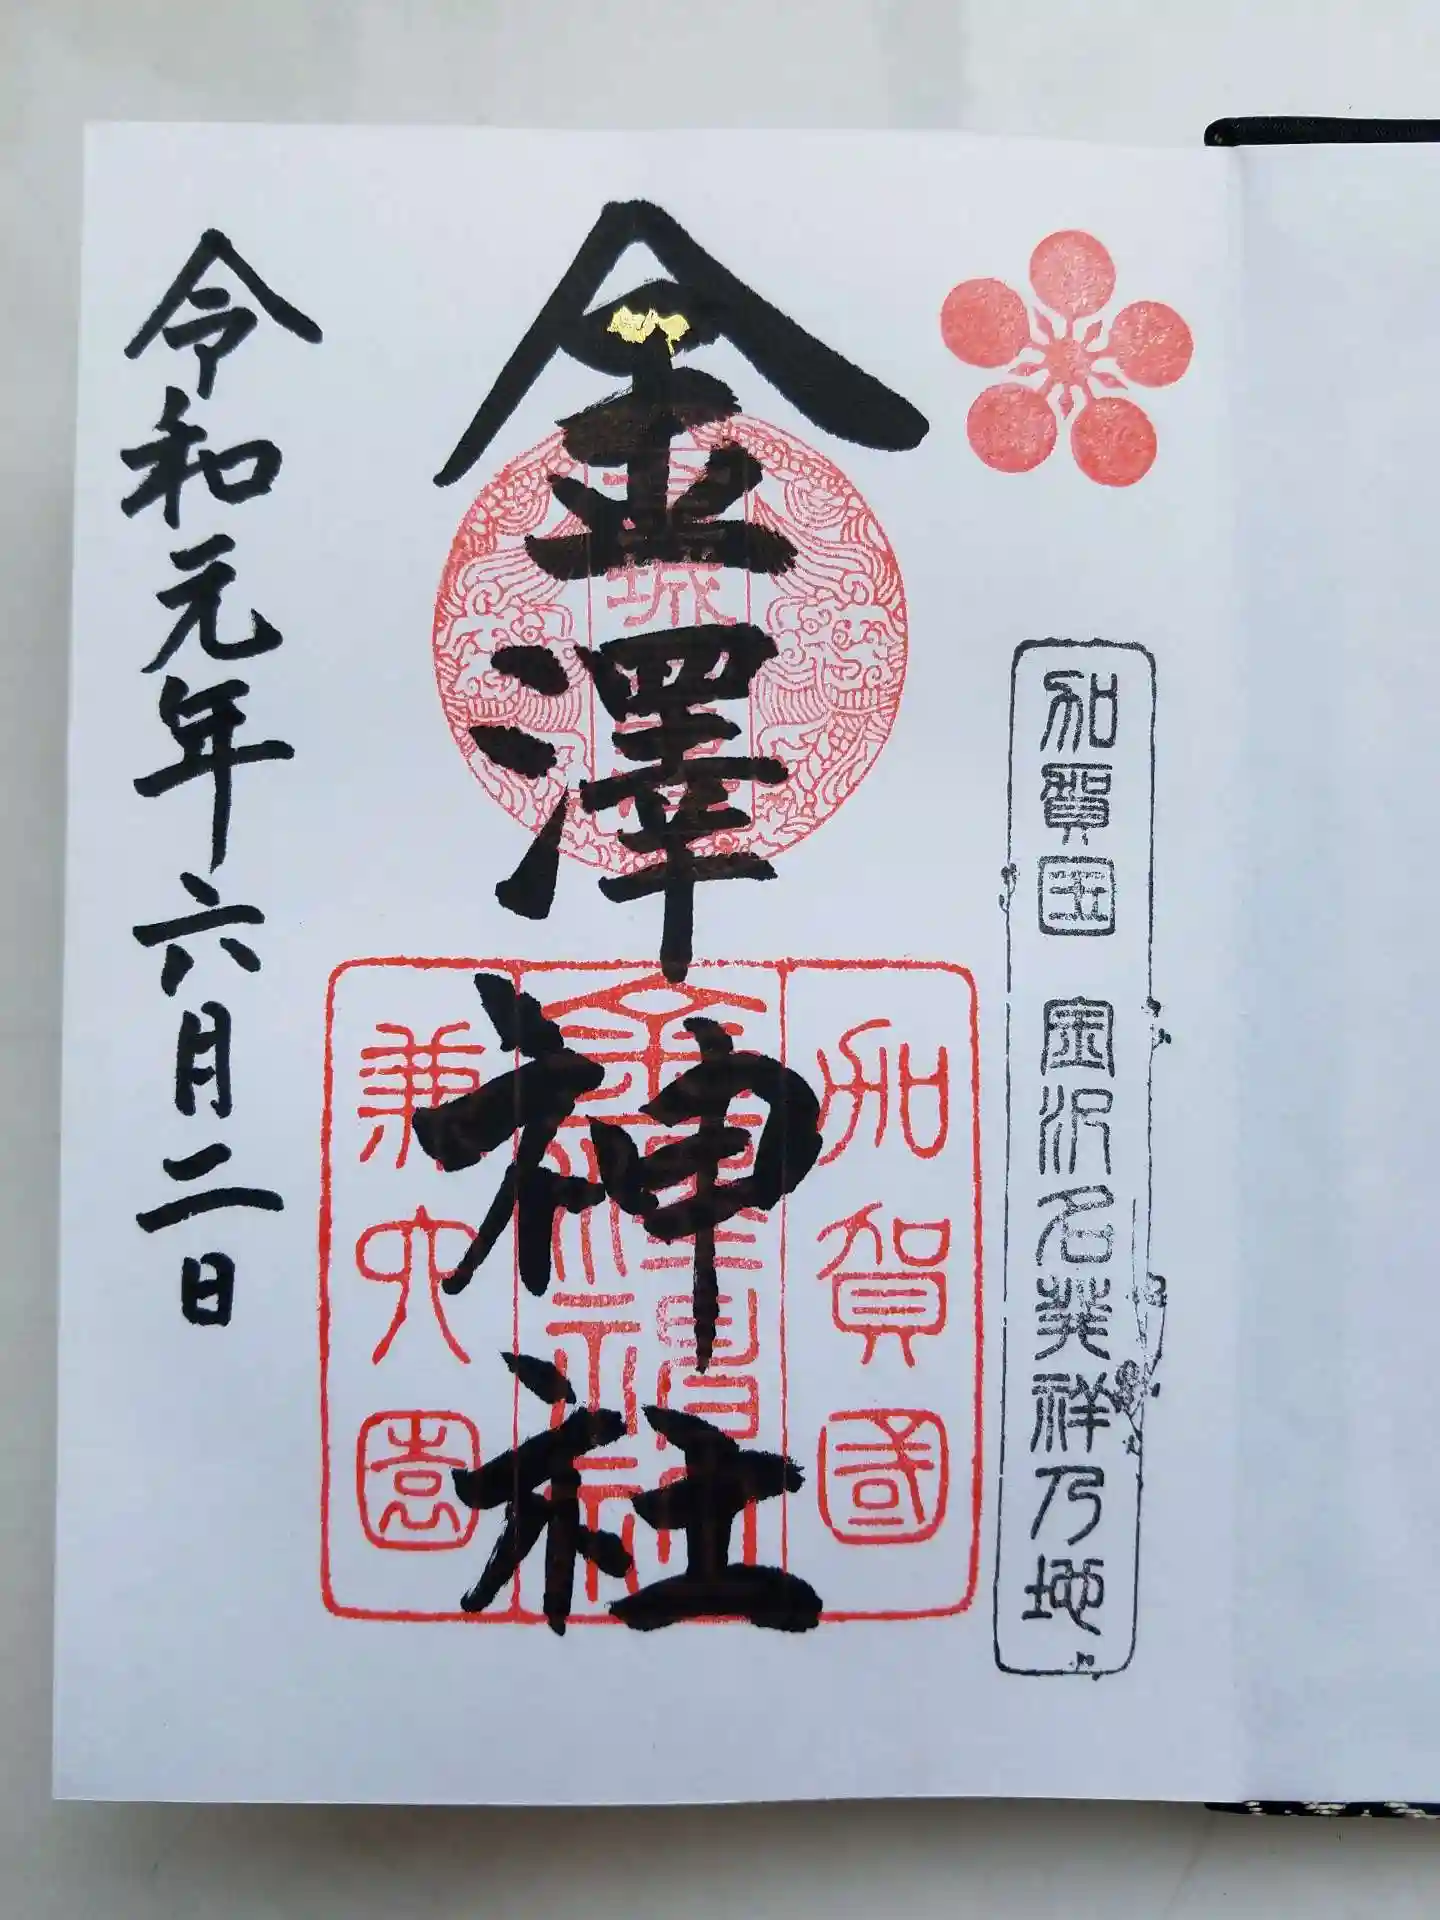 加賀国 金沢名発祥乃地
金澤神社
城
加賀國
金澤神社
兼六園
令和元年六月二日